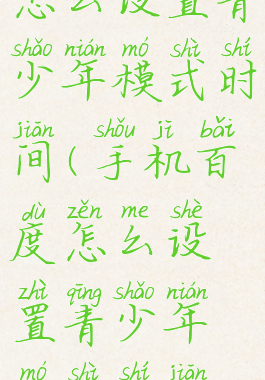 怎么设置青
shǎo nián mó shì shí
少年模式时
jiān shǒu jī bǎi
间(手机百
dù zěn me shè
度怎么设
zhì qīng shǎo nián
置青少年
mó shì shí jiān